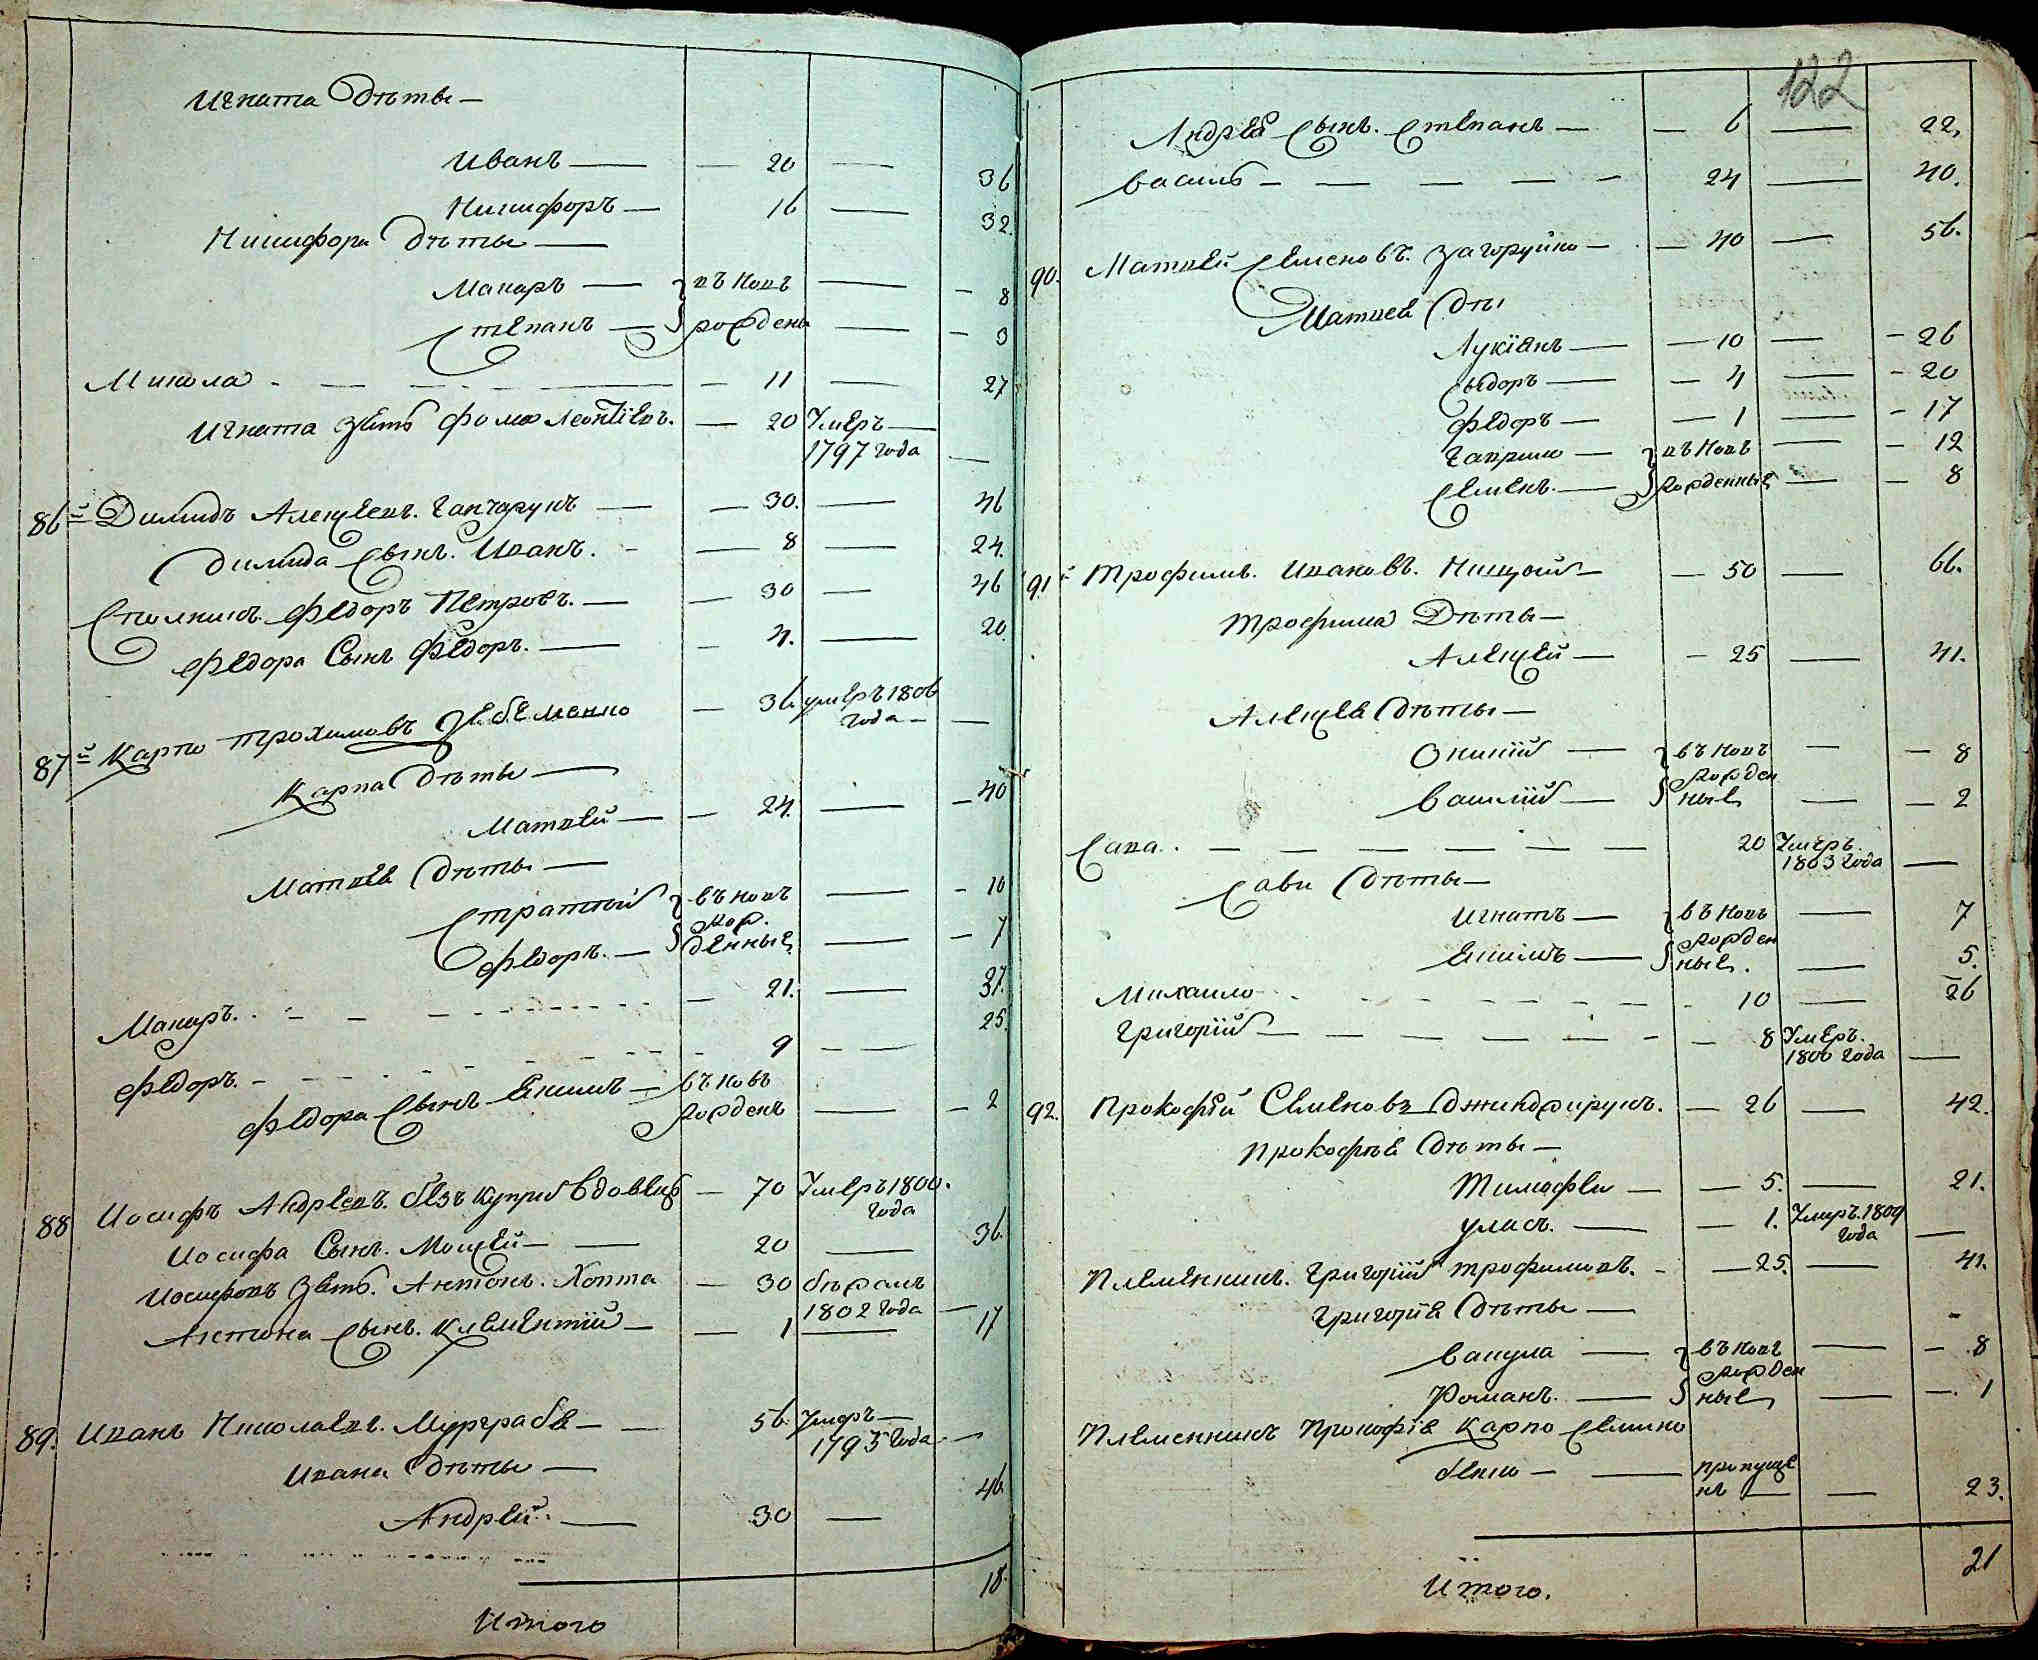 Игната дѣты —
Иванъ — — 20 — 36
Никифоръ — 16 — 32.
Никифора дѣты —
Макаръ — въ новъ — — 8
Степанъ — рожденъ — — 3
Микола - — — — 11 — 27
Игната зять Фома Леонтіевъ. — 20 Умеръ —
1797 года —
86й Димидъ Алексеевъ. Ганчарукъ — — 30. — 46
Димида сынъ. Иванъ. - — 8 — 24.
Сполникъ Федоръ Петровъ. — — 30 — 46
Федора Сынъ Федоръ. — — 4. — 20.
87й Карпо Трохимовъ — 36 умеръ 1806
года — —
Карпа дѣты —
Матвей — — 24. — — 40
Матвея дѣты —
Стратный въ новъ — - 10
Федоръ. — рожденные — — 7
Макаръ. — — — — 21. — 37.
Федоръ. — — — 9 — — 25.
Федора сынъ Якимъ — въ новъ
рожденъ — — 2
88 Иосифъ Андреевъ. безъ купри вдовецъ — 70 Умеръ 1800.
года
Иосифа Сынъ. Мосей — — 20 — 36.
Иосифовъ зять. Антонъ. Хопта — 30 бѣжалъ
1802 года —
Антона сынъ. Клементій — — 1 — 17
89. Иванъ Николаевъ. Мурграбя — — 56 Умеръ —
1795 года —
Ивана дѣты —
Андрей. — 30 — 46.
Итого 18.
122
Андрея сынъ. Степанъ — — 6 — 22,
Василь — — — — — — 24 — 40.
90. Матвей Семеновъ. Загоруйко — — 40 — 56.
Матвея дѣты
Лукіянъ — — 10 — — 26
Сыдоръ — — 4 — - 20
Федоръ — — 1 — - 17
Гаврило — въ новъ — — 12
Семенъ. — рожденные — — 8
91й Трофимъ. Ивановъ. Нищый — — 50 — 66.
Трофима Дѣты —
Алексей — — 25 — 41.
Алексея дѣты —
Оникій — въ новъ — — 8
рожден
Василій — ные — — 2
Сава. — — — — — — 20 Умеръ.
1803 года —
Савы дѣты —
Игнатъ — въ новъ — 7
рожден
Якимъ — ные. — 5.
Михайло - - - - 10 — 26
Григорій — — — — — — 8 Умеръ.
1800 года —
92. Прокофій Семеновъ — 26 — 42.
Прокофѣя дѣты —
Тимофей — — 5. — 21.
Уласъ. — — 1. Умеръ. 1809
года —
Племенникъ. Григорій Трофимовъ. — — 25. — 41.
Григорія дѣты —
Вакула — въ новъ — — 8
рожден
Романъ. — ные — — 1
Племенникъ Прокофія Карпо Семино
бенко — — пропуще
нъ — — 23.
Итого. 21